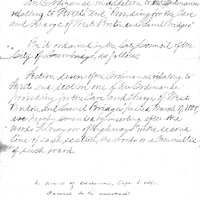 An Ordinance in addition to an Ordinance
relating to Streets and Providing for the Care
and Charge of West Boston and Canal Bridges.
Be it ordained by the City Council of the
City of Cambridge, as follows:
Section seven of the Ordinance relating to
Streets and section one of the Ordinance
providing for the Care and Charge of West
Boston and Canal Bridges, passed March 17, 1858,
are hereby amended by inserting after the
words of Highways in the second
line of each section, the words or a Committee
of said Board.
Board of Aldermen, Sept.
Ordered to be